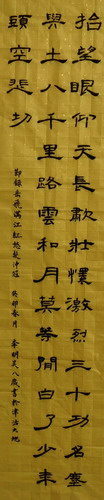 抬望眼仰天長歗壯懷激烈三十功名塵
與土八千里路雲和月莫等閒白了少年
頭空悲切
錄岳飛滿江紅怒髮沖冠 癸卯春月 李明八歲書於津沽大地